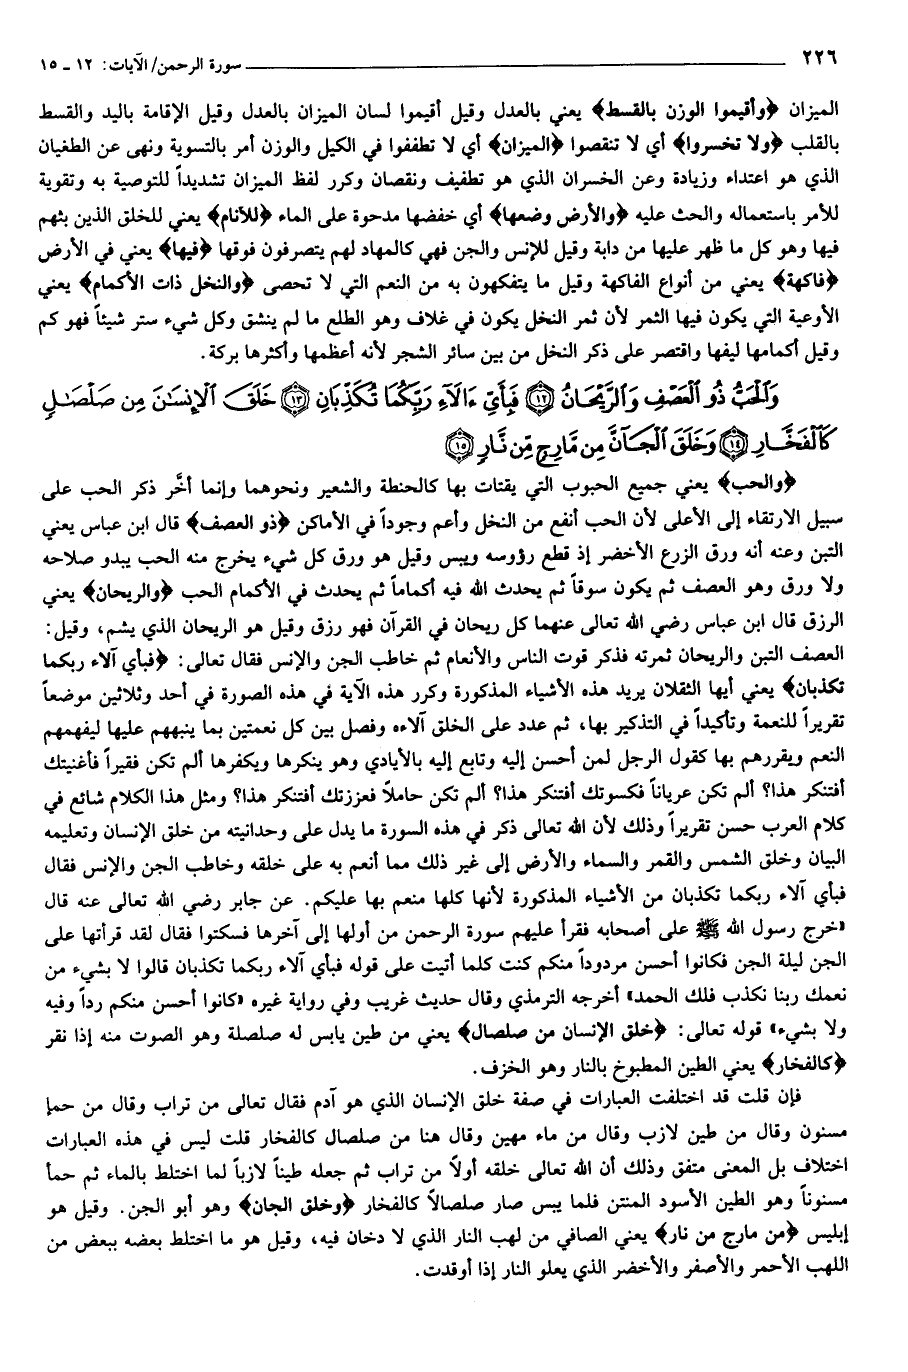 ٢٢٦ سورة الرحمن/ الآيات: ١٢ ـ ١٥
الميزان ﴿وأقيموا الوزن بالقسط﴾ يعني بالعدل وقيل أقيموا لسان الميزان بالعدل وقيل الإقامة باليد والقسط
بالقلب ﴿ولا تخسروا﴾ أي لا تنقصوا ﴿الميزان﴾ أي لا تطففوا في الكيل والوزن أمر بالتسوية ونهى عن الطغيان
الذي هو اعتداء وزيادة وعن الخسران الذي هو تطفيف ونقصان وكرر لفظ الميزان تشديداً للتوصية به وتقوية
للأمر باستعماله والحث عليه ﴿والأرض وضعها﴾ أي خفضها مدحوة على الماء ﴿للأنام﴾ يعني للخلق الذين بثهم
فيها وهو كل ما ظهر عليها من دابة وقيل للإنس والجن فهي كالمهاد لهم يتصرفون فوقها ﴿فيها﴾ يعني في الأرض
﴿فاكهة﴾ يعني من أنواع الفاكهة وقيل ما يتفكهون به من النعم التي لا تحصى ﴿والنخل ذات الأكمام﴾ يعني
الأوعية التي يكون فيها الثمر لأن ثمر النخل يكون في غلاف وهو الطلع ما لم ينشق وكل شيء ستر شيئاً فهو كم
وقيل أكمامها ليفها واقتصر على ذكر النخل من بين سائر الشجر لأنه أعظمها وأكثرها بركة.
وَٱلْحَبُّ ذُو ٱلْعَصْفِ وَٱلرَّيْحَانُ ﴿١٢﴾ فَبِأَيِّ ءَالَآءِ رَبِّكُمَا تُكَذِّبَانِ ﴿١٣﴾ خَلَقَ ٱلْإِنسَٰنَ مِن صَلْصَٰلٍ
كَٱلْفَخَّارِ ﴿١٤﴾ وَخَلَقَ ٱلْجَآنَّ مِن مَّارِجٍ مِّن نَّارٍ ﴿١٥﴾
﴿والحب﴾ يعني جميع الحبوب التي يقتات بها كالحنطة والشعير ونحوهما وإنما أخَّر ذكر الحب على
سبيل الارتقاء إلى الأعلى لأن الحب أنفع من النخل وأعم وجوداً في الأماكن ﴿ذو العصف﴾ قال ابن عباس يعني
التبن وعنه أنه ورق الزرع الأخضر إذ قطع رؤوسه ويبس وقيل هو ورق كل شيء يخرج منه الحب يبدو صلاحه
ولا ورق وهو العصف ثم يكون سوقاً ثم يحدث الله فيه أكماماً ثم يحدث في الأكمام الحب ﴿والريحان﴾ يعني
الرزق قال ابن عباس رضي الله تعالى عنهما كل ريحان في القرآن فهو رزق وقيل هو الريحان الذي يشم، وقيل:
العصف التبن والريحان ثمرته فذكر قوت الناس والأنعام ثم خاطب الجن والإنس فقال تعالى: ﴿فبأي آلاء ربكما
تكذبان﴾ يعني أيها الثقلان يريد هذه الأشياء المذكورة وكرر هذه الآية في هذه الصورة في أحد وثلاثين موضعاً
تقريراً للنعمة وتأكيداً في التذكير بها، ثم عدد على الخلق آلاءه وفصل بين كل نعمتين بما ينبههم عليها ليفهمهم
النعم ويقررهم بها كقول الرجل لمن أحسن إليه وتابع إليه بالأيادي وهو ينكرها ويكفرها ألم تكن فقيراً فأغنيتك
أفتنكر هذا؟ ألم تكن عرياناً فكسوتك أفتنكر هذا؟ ألم تكن حاملاً فعززتك أفتنكر هذا؟ ومثل هذا الكلام شائع في
كلام العرب حسن تقريراً وذلك لأن الله تعالى ذكر في هذه السورة ما يدل على وحدانيته من خلق الإنسان وتعليمه
البيان وخلق الشمس والقمر والسماء والأرض إلى غير ذلك مما أنعم به على خلقه وخاطب الجن والإنس فقال
فبأي آلاء ربكما تكذبان من الأشياء المذكورة لأنها كلها منعم بها عليكم. عن جابر رضي الله تعالى عنه قال
«خرج رسول الله ﷺ على أصحابه فقرأ عليهم سورة الرحمن من أولها إلى آخرها فسكتوا فقال لقد قرأتها على
الجن ليلة الجن فكانوا أحسن مردوداً منكم كنت كلما أتيت على قوله فبأي آلاء ربكما تكذبان قالوا لا بشيء من
نعمك ربنا نكذب فلك الحمد» أخرجه الترمذي وقال حديث غريب وفي رواية غيره «كانوا أحسن منكم رداً وفيه
ولا بشيء» قوله تعالى: ﴿خلق الإنسان من صلصال﴾ يعني من طين يابس له صلصلة وهو الصوت منه إذا نقر
﴿كالفخار﴾ يعني الطين المطبوخ بالنار وهو الخزف.
فإن قلت قد اختلفت العبارات في صفة خلق الإنسان الذي هو آدم فقال تعالى من تراب وقال من حمإ
مسنون وقال من طين لازب وقال من ماء مهين وقال هنا من صلصال كالفخار قلت ليس في هذه العبارات
اختلاف بل المعنى متفق وذلك أن الله تعالى خلقه أولاً من تراب ثم جعله طيناً لازباً لما اختلط بالماء ثم حمأ
مسنوناً وهو الطين الأسود المنتن فلما يبس صار صلصالاً كالفخار ﴿وخلق الجان﴾ وهو أبو الجن. وقيل هو
إبليس ﴿من مارج من نار﴾ يعني الصافي من لهب النار الذي لا دخان فيه، وقيل هو ما اختلط بعضه ببعض من
اللهب الأحمر والأصفر والأخضر الذي يعلو النار إذا أوقدت.